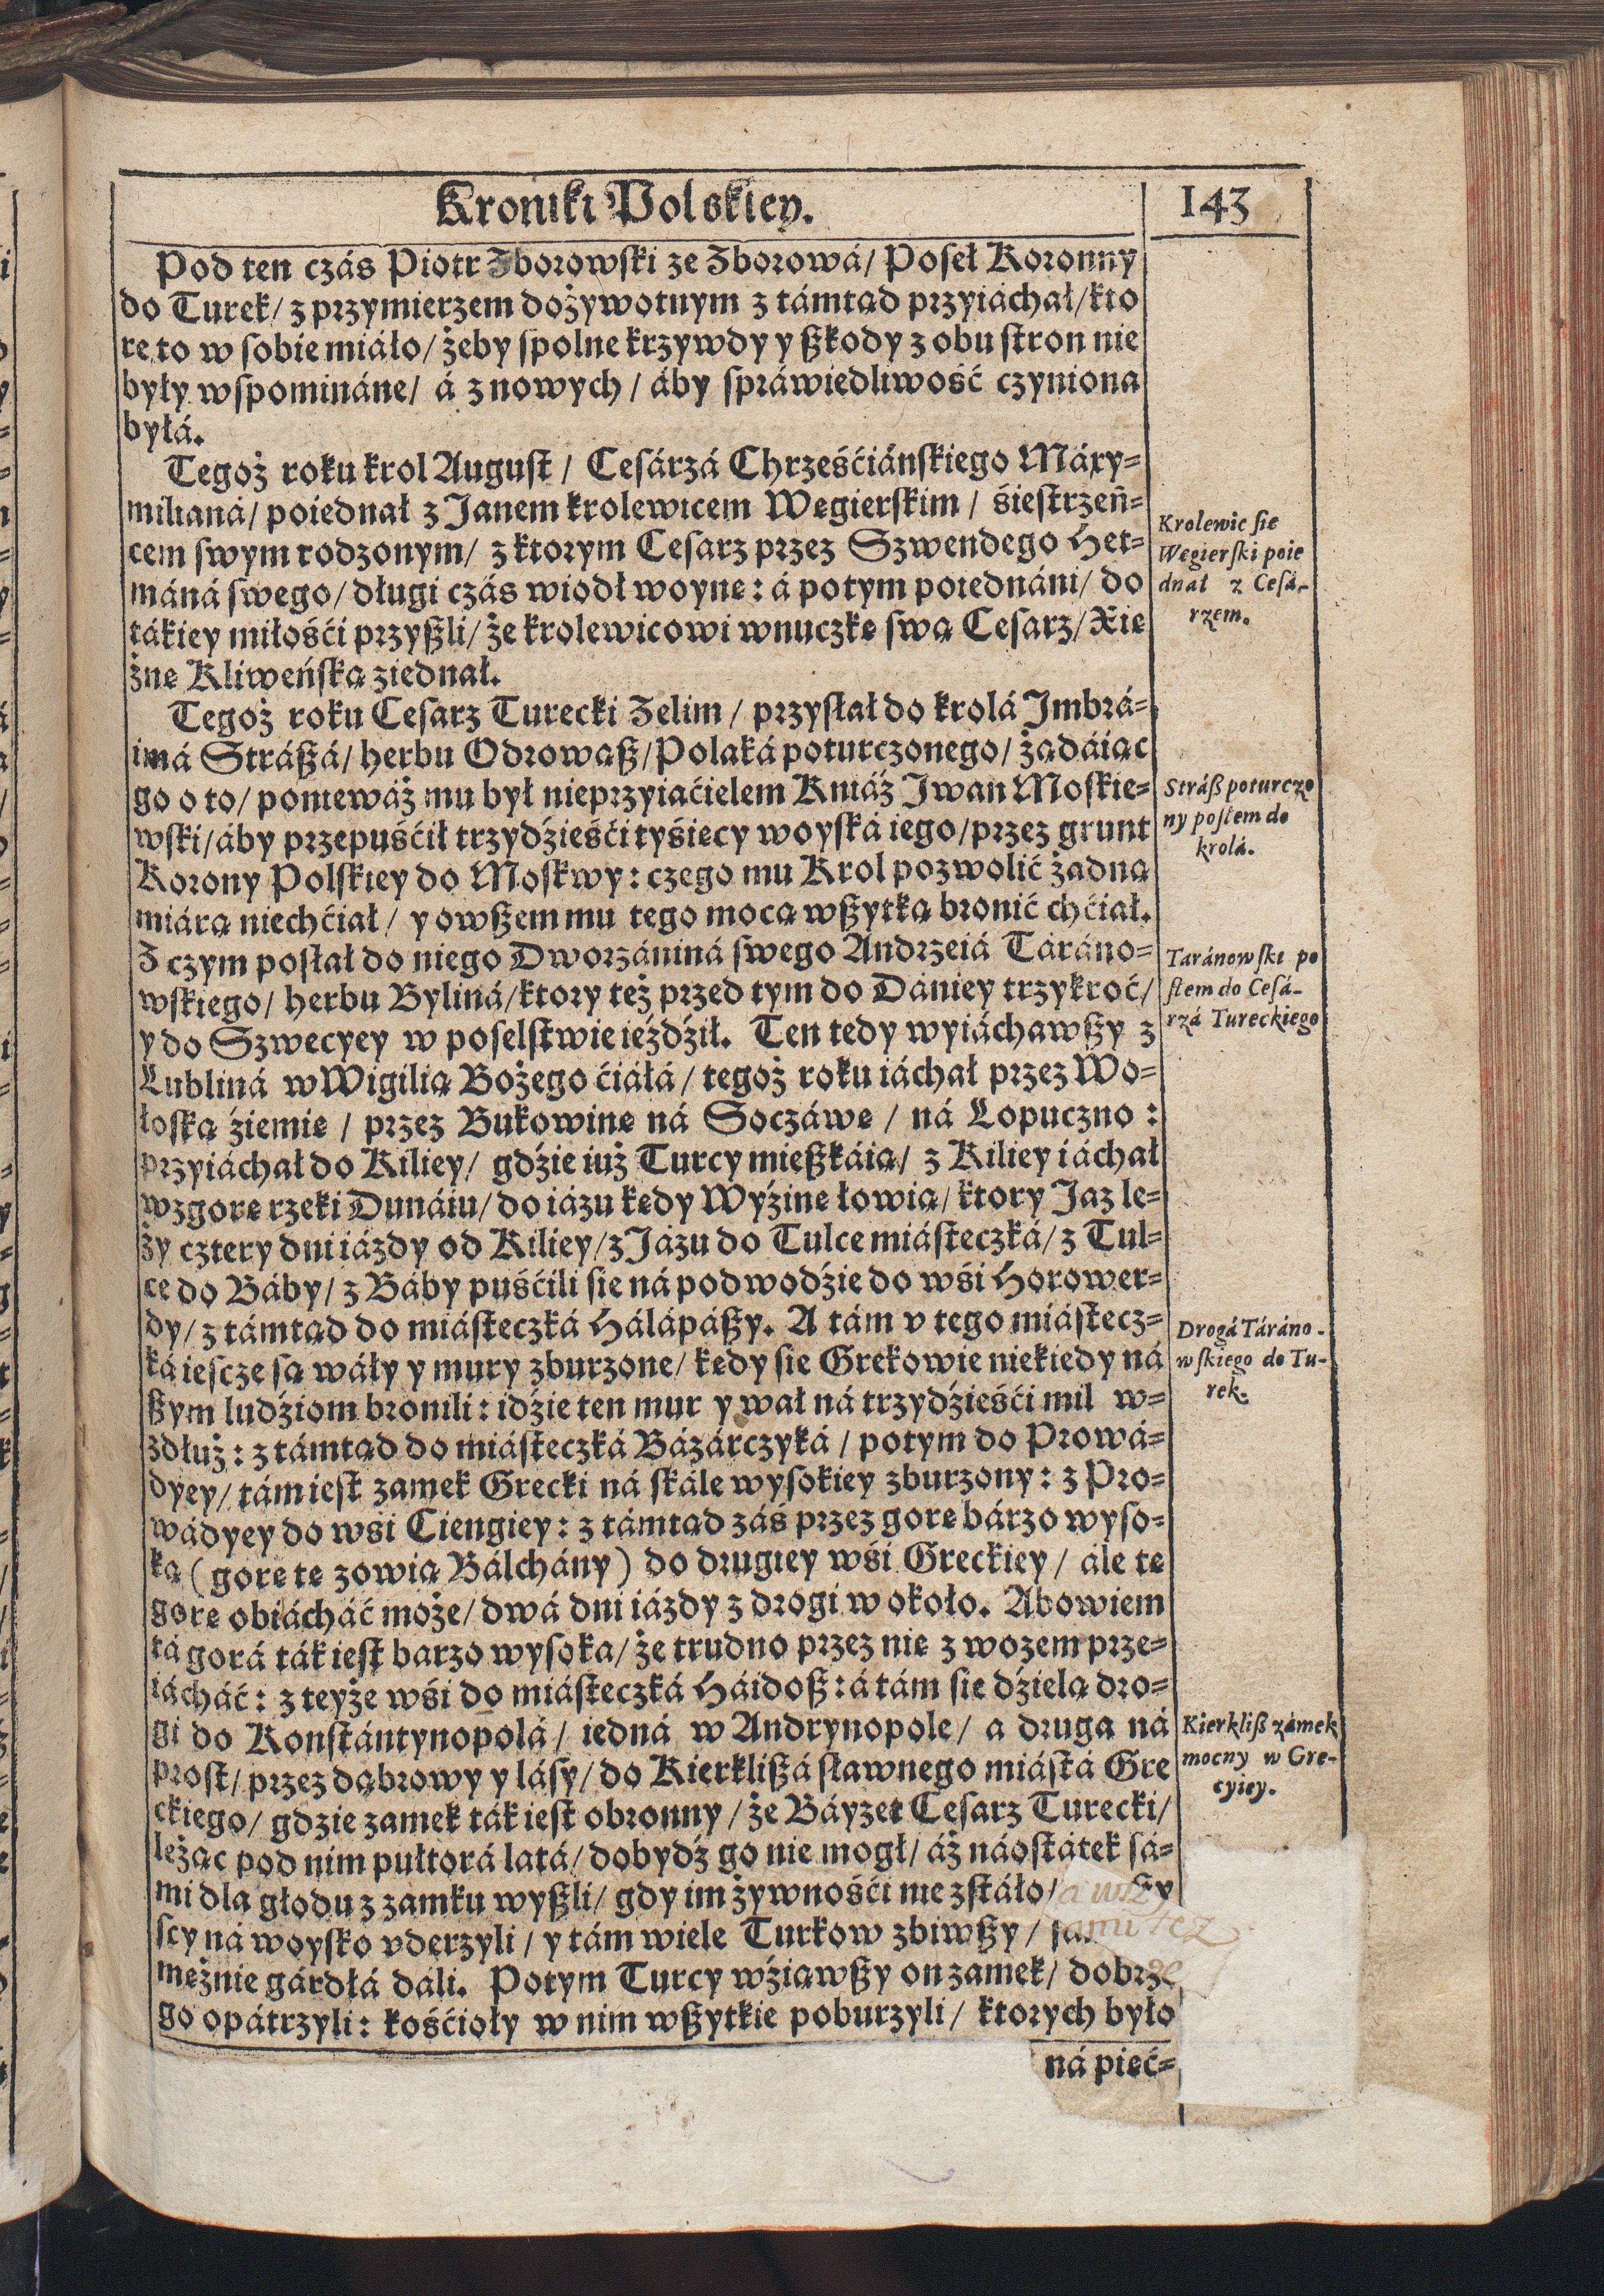 Kroniki Polskiey.
143
Pod ten czás Piotr Zborowski ze Zborowá/ Poseł Koronny
do Turek/ z przymierzem dożywotnym z támtąd przyiáchał/ kto
re to w sobie miáło/ żeby spolne krzywdy y ßkody z obu stron nie
były wspomináne/ á z nowych/ áby spráwiedliwość czyniona
byłá.
Tegoż roku krol August/ Cesárzá Chrześćiáńskiego Máxy=
milianá/ poiednał z Janem krolewicem Węgierskim/ śiestrzeń=
cem swym rodzonym/ z ktorym Cesarz przez Szwendego Het=
máná swego/ długi czás wiodł woynę: á potym poiednáni/ do
tákiey miłośći przyßli/ że krolewicowi wnuczkę swą Cesarz/ Xię
żnę Kliweńską ziednał.
Krolewic sie
Węgierski poie
dnał z Cesá-
rzem.
Tegoż roku Cesarz Turecki Zelim/ przysłał do krolá Jmbrá=
imá Stráßá/ herbu Odrowąß/ Polaká poturczonego/ żądáiąc
go o to/ ponieważ mu był nieprzyiaćielem Kniáź Jwan Moskie=
wski/ áby przepuśćił trzydźieśći tyśięcy woyská iego/ przez grunt
Korony Polskiey do Moskwy: czego mu Krol pozwolić żadną
miárą niechćiał/ y owßem mu tego mocą wßytką bronić chćiał.
Z czym posłał do niego Dworzániná swego Andrzeiá Táráno=
wskiego/ herbu Byliná/ ktory też przed tym do Dániey trzykroć/
y do Szwecyey w poselstwie ieźdźił. Ten tedy wyiáchawßy z
Lubliná w Wigilią Bożego ćiáłá/ tegoż roku iáchał przez Wo=
łoską źiemię/ przez Bukowinę ná Soczáwę/ ná Lopuczno:
przyiáchał do Kiliey/ gdźie iuż Turcy mießkáią/ z Kiliey iáchał
wzgorę rzeki Dunáiu/ do iázu kędy Wyźinę łowią/ ktory Jaz le=
ży cztery dni iázdy od Kiliey/ z Jázu do Tulce miásteczká/ z Tul=
ce do Báby/ z Báby puśćili sie ná podwodźie do wśi Horower=
dy/ z támtąd do miásteczká Hálápáßy. A tám v tego miástecz=
ká iescze są wáły y mury zburzone/ kędy sie Grekowie niekiedy ná
ßym ludźiom bronili: idźie ten mur y wał ná trzydźieśći mil w=
zdłuż: z támtąd do miásteczká Bázárczyká/ potym do Prowá=
dyey/ tám iest zamek Grecki ná skále wysokiey zburzony: z Pro=
wádyey do wśi Ciengiey: z támtąd záś przez gorę bárzo wyso=
ką (gorę tę zowią Bálchány) do drugiey wśi Greckiey/ ále tę
gorę obiácháć może/ dwá dni iázdy z drogi w około. Abowiem
tá gorá ták iest barzo wysoka/ że trudno przez nię z wozem prze=
iácháć: z teyże wśi do miásteczká Háidoß: á tám sie dźielą dro=
gi do Konstántynopolá/ iedná w Andrynopole/ a druga ná
prost/ przez dąbrowy y lásy/ do Kierklißá sławnego miástá Gre
ckiego/ gdzie zamek ták iest obronny/ że Báyzet Cesarz Turecki/
leżąc pod nim pułtorá látá/ dobydź go nie mogł/ áż náostátek sá=
mi dla głodu z zamku wyßli/ gdy im żywnośći nie zstáło/ a wßy
scy ná woysko vderzyli/ y tám wiele Turkow zbiwßy/ sami też
mężnie gárdłá dáli. Potym Turcy wźiąwßy on zamek/ dobrze
go opátrzyli: kośćioły w nim wßytkie poburzyli/ ktorych było
ná pięć=
Stráß poturczo
ny posłem do
krolá.
Táránowski po
słem do Cesá-
rzá Tureckiego
Drogá Táráno-
wskiego do Tu-
rek.
Kierkliß zamek
mocny w Gre-
cyiey.